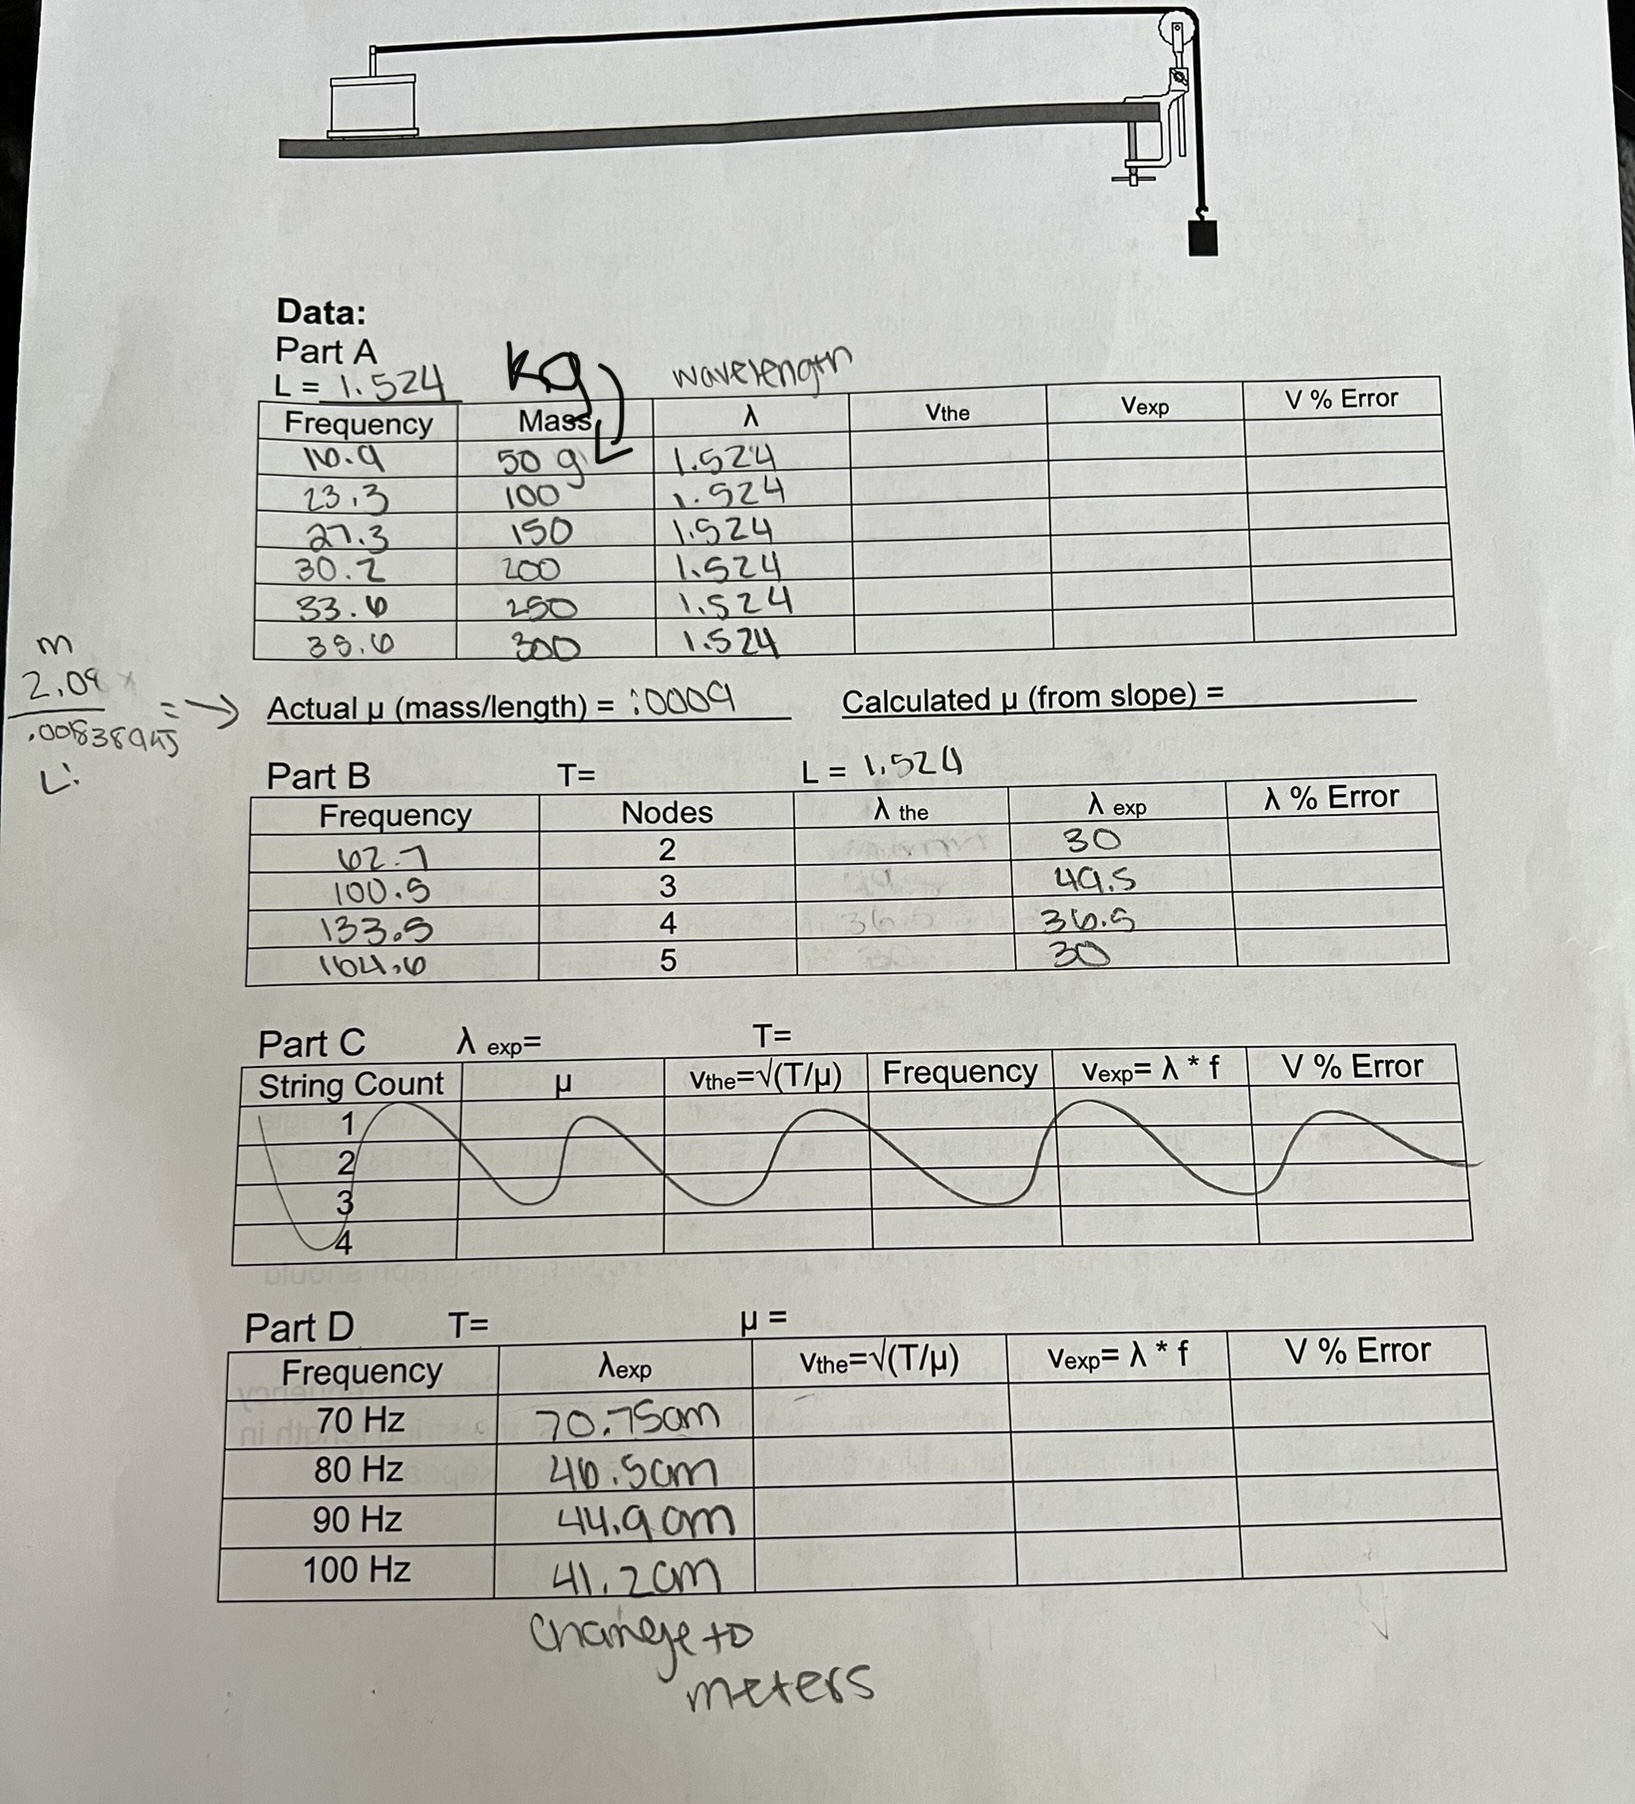 Data:
Part A
L = 1.524 kg wavelength
Frequency Mass λ Vthe Vexp V % Error
16.9 50 g 1.524
23.3 100 1.524
27.3 150 1.524
30.2 200 1.524
33.6 250 1.524
35.6 300 1.524
m
2.08
.00838945
L:
= Actual μ (mass/length) = .0009 Calculated μ (from slope) =
Part B T= L = 1.524
Frequency Nodes λ the λ exp λ % Error
62.7 2 30
100.5 3 49.5
133.5 4 36.5 36.5
164.6 5 30 30
Part C λ exp= T=
String Count μ vthe=√(T/μ) Frequency vexp= λ * f V % Error
1
2
3
4
Part D T= μ =
Frequency λexp vthe=√(T/μ) vexp= λ * f V % Error
70 Hz 70.75cm
80 Hz 46.5cm
90 Hz 44.9cm
100 Hz 41.2cm
change to
meters